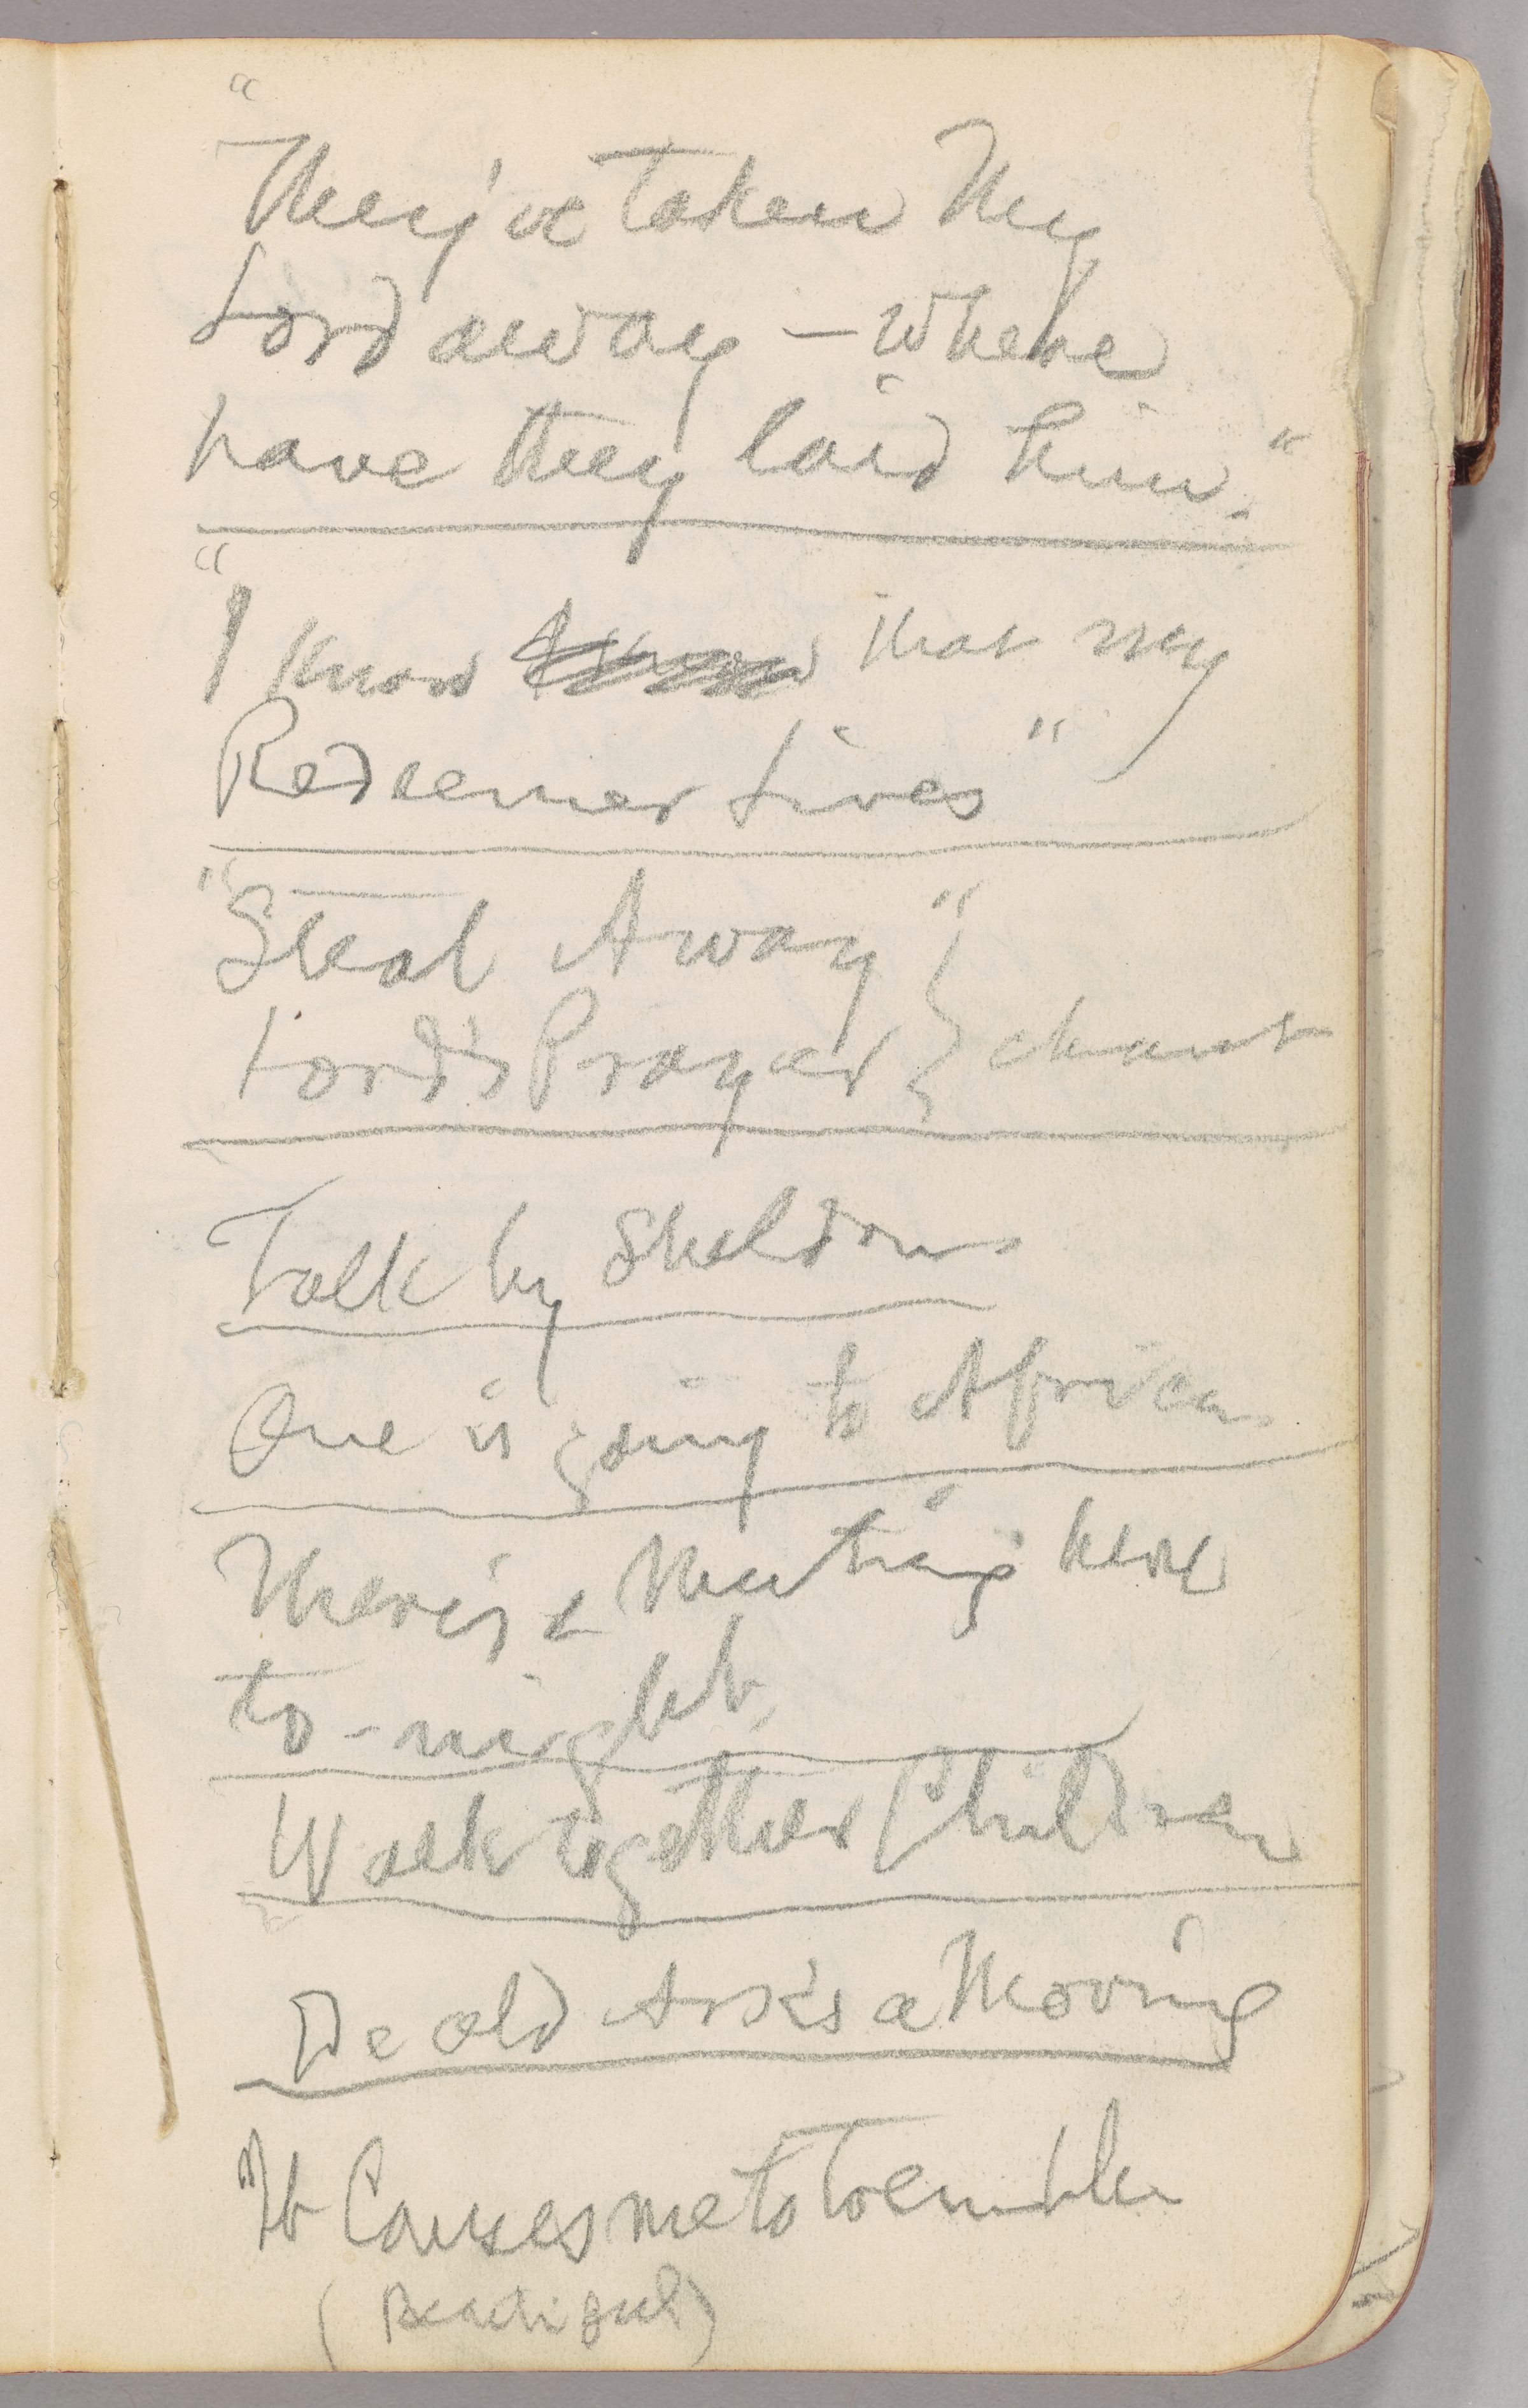 "They've taken My
Lord away – where
have they laid him."
"I know that my
Redeemer Lives"
"Steal Away"
Lord's Prayer } chant
Talk by Sheldon
One is going to Africa
There's a Meeting here
to-night,
Walk together Children
De old Ark's a Moving
"It Causes me to Tremble
(Beautiful)